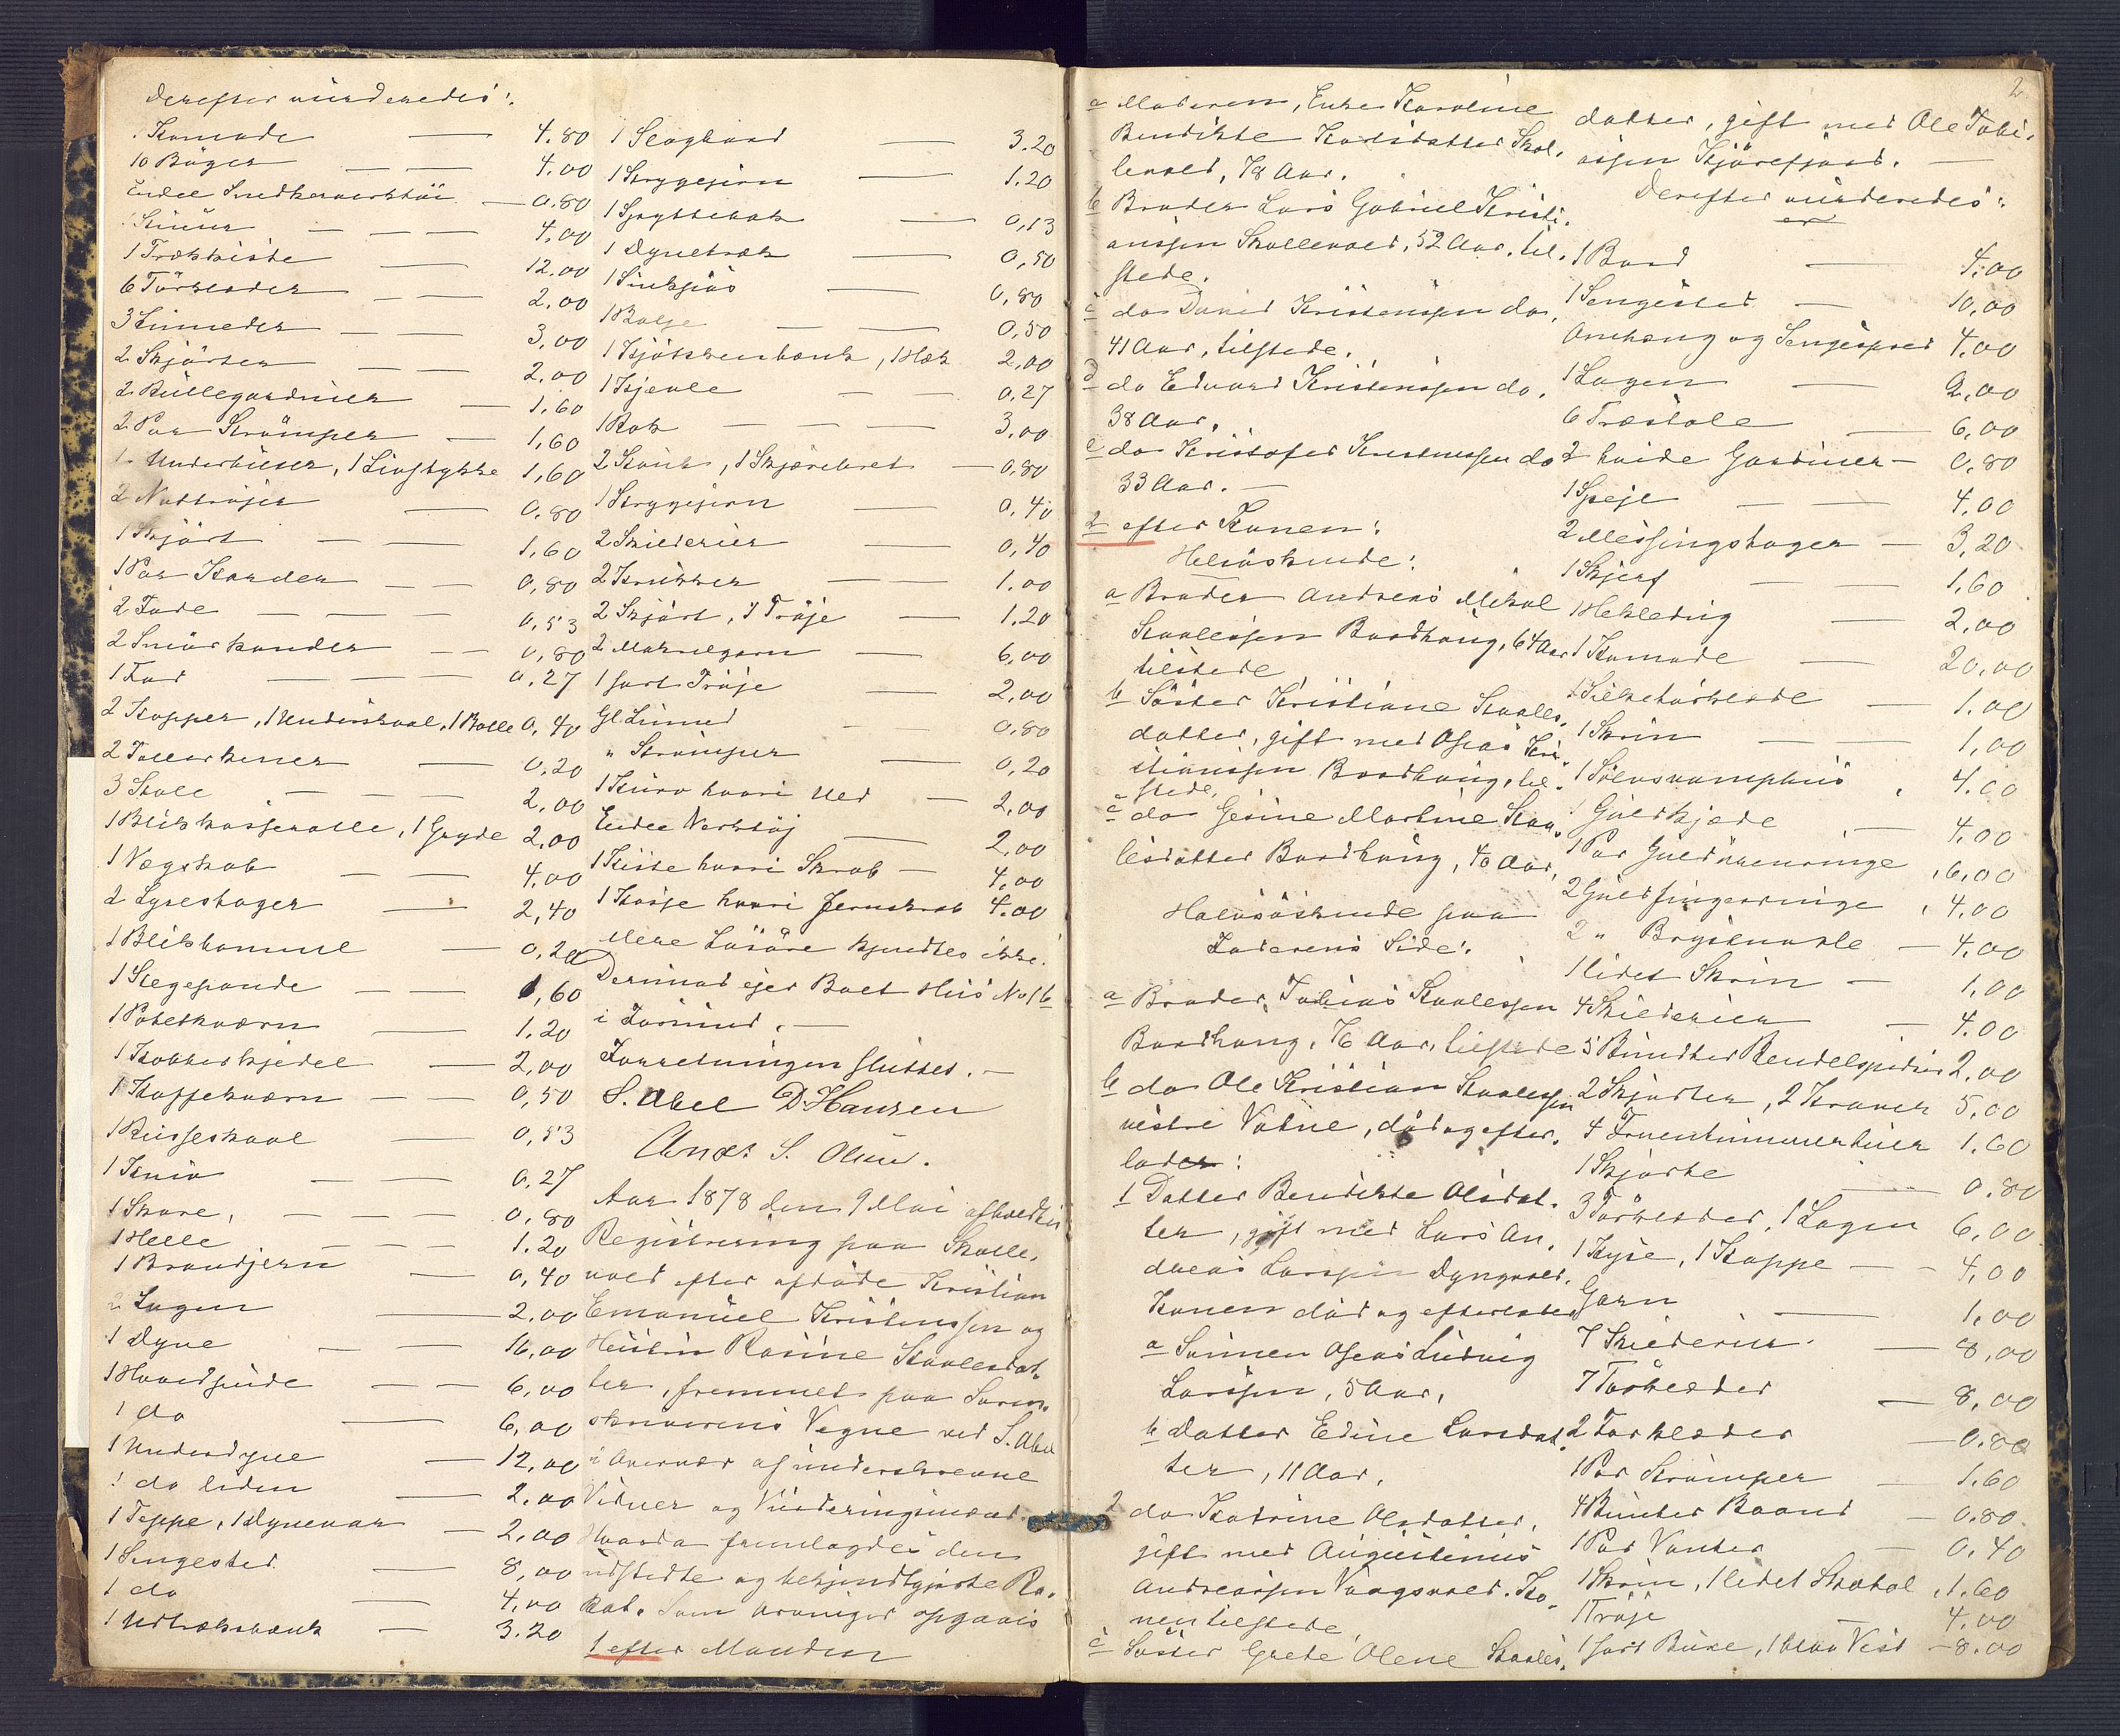 Derefter vurderedes:
1 Komode — 4.80
10 Bøger — — 4,00
Endel Snedkerverktøi — 0.80
4,00
1 Trækkiste — 12.00
6 Tørklæder — — 2.00
3 — — 3,00
2 Skjørter — — 2,00
2 Rullegardiner — 1,60
2 Par Strømper — 1,60
1 Underbuxer, 1 Livstykke 1,60
2 Nattrøjer — 0,80
1 Skjørt — — 1,60
1 Par Karder — — 0,80
2 Fade — — — 0,53
2 Smørkander — — 0,80
1 Fad — — — 0.27
2 Kopper, 1 Underskaal, 1 Bolle 0,40
2 Tallerkener — 0,20
3 Stole — — — 2,00
1 Blikkasserolle, 1 Gryde 2,00
1 Vægskab — — 4,00
2 Lysestager — 2,40
1 Blikkomme — 0,20
1 Stegepande — — 1,60
1 Potetkværn — 1.20
1 Kobberkjedel — 2,00
1 Kaffekværn — — 0,50
1 — 0,53
1 Kniv — — 0,27
1 — — — 0,80
1 Helle — — — 1.20
1 Brandjern — 0,40
2 Lagen — 2,00
1 Dyne — — 16,00
1 Hovedpude — — 6,00
1 do — 6,00
1 Underdyne — 12,00
1 do liden — 2.00
1 Teppe, 1 Dynevar — 2,00
1 Sengested — 8,00
1 do — 4,00
1 Udtræksbænk — 3.20
1 Slagbord — 3.20
1 Strygejern — 1,20
1 — 0,13
1 Dynetræk — 0,50
1 — 0,80
1 Balje — — 0,50
1 Kjøkkenbænk, 1 2,00
1 Kjevle — — 0,27
1 — — — 3,00
2 , 1 Skjærebret — 0,80
1 Strygejern — 0,40
2 Skilderier — 0,40
2 Krukker — 1.00
2 Skjørt, 1 Trøje — 1.20
2 — 6,00
1 sort Trøje — 2,00
Gl. Linned — 0,80
" Strømper — 0,20
1 Kurv hvori Uld — 2,00
Endel Verktøj — 2,00
1 Kiste hvori Skrab — 4,00
1 Kasse hvori Jernskrab 4.00
Mere Løsøre kjendtes ikke.
Derimod ejer Boet Hus No 16
i Farsund. —
Forretningen sluttet. —
S. Abel D. Hansen
Andr. S. Olsen.
Aar 1878 den 9 Mai afholdtes
Registrering paa Skolle-
vold efter afdøde Kristian
Emanuel Kristensen og
Hustru Rosine Staalesdat-
ter, fremmet paa Soren-
skriverens Vegne ved S. Abel
i Overvær af underskrevne
Vidner og Vurderingsmænd.
Hvorda fremlagdes den
udstedte og bekjendtgjorte Pla-
kat. Som arvinger opgaves
1 efter Manden
2
a Moderen, Enke Karoline
Bendikte Karlsdatter Skol-
levold, 78 Aar.
b Broder Lars Gabriel Kristi-
anssen Skollevold, 52 Aar, til-
stede.
c do Daniel Kristenssen do,
41 Aar, tilstede.
d do Edvard Kristenssen do,
38 Aar.
e do Kristofer Kristenssen do
33 Aar. —
2 efter Konen:
Helsøskende:
a Broder Andreas Mikal
Staalessen Bordhaug, 64 Aar
tilstede
b Søster Kristiane Staales-
datter, gift med Oseas Kri-
stianssen Bordhaug, til-
stede.
c do Gesine Martine Staa-
lesdatter Bordhaug, 40 Aar,
Halvsøskende paa
Faderens Side:
a Broder, Tobias Staalessen
Bordhaug, 76 Aar, tilstede
b do Ole Kristian Staalessen
vestre Vatne, død og efter-
lader:
1 Datter Bendikte Olsdat-
ter, gift med Lars An-
dreas Larssen Dyngvold.
Konen død og efterladt
a Sønnen Oseas Ludvig
Larssen, 5 Aar,
b Datter Edine Larsdat-
ter, 11 Aar.
2 do Katrine Olsdatter,
gift med Augustinus
Andreassen Vaagsvold. Ko-
nen tilstede
c Søster Grete Olene Staales-
datter, gift med Ole Tobi-
assen Kjørefjord. —
Derefter vurderedes:
1 Bord — 4.00
1 Sengested — 10,00
Omhæng og Sengespred 4.00
1 Lagen — 2,00
6 Træstole — 6,00
2 hvide Gardiner — 0,80
1 Spejl — — 4,00
2 Messingstager — 3,20
1 Skjerf — — 1,60
1 Hekleting — 2,00
1 Komode — 20,00
1 Silketørklæde — 1.00
1 Skrin — — 1,00
1 Sølvsvamphus 4.00
1 Guldkjæde — 4,00
1 Par Guldørenringe 6,00
2 Guldfingerringe 4,00
2 " Brystnaale — 4,00
1 lidet Skrin — 1,00
4 Skilderier — 4.00
5 Bundter 2,00
2 Skjorter, 2 Kraver 5,00
4 Fruentimmerluer 1,60
1 Skjorte — 0.80
3 Tørklæder, 1 Lagen 6,00
1 Kyse, 1 Kappe — — 4,00
Garn — 1,00
7 Skilderier — 8,00
7 Tørklæder — 8,00
2 Tørklæder — 0.80
1 Par Strømper — 1.60
4 Bundter Baand — 0.80
1 Par Vanter — 0.40
1 Skrin, 1 lidet Skatol 1.60
1 Trøje — 4.00
1 sort Buxe, 1 blaa Vest — 8.00